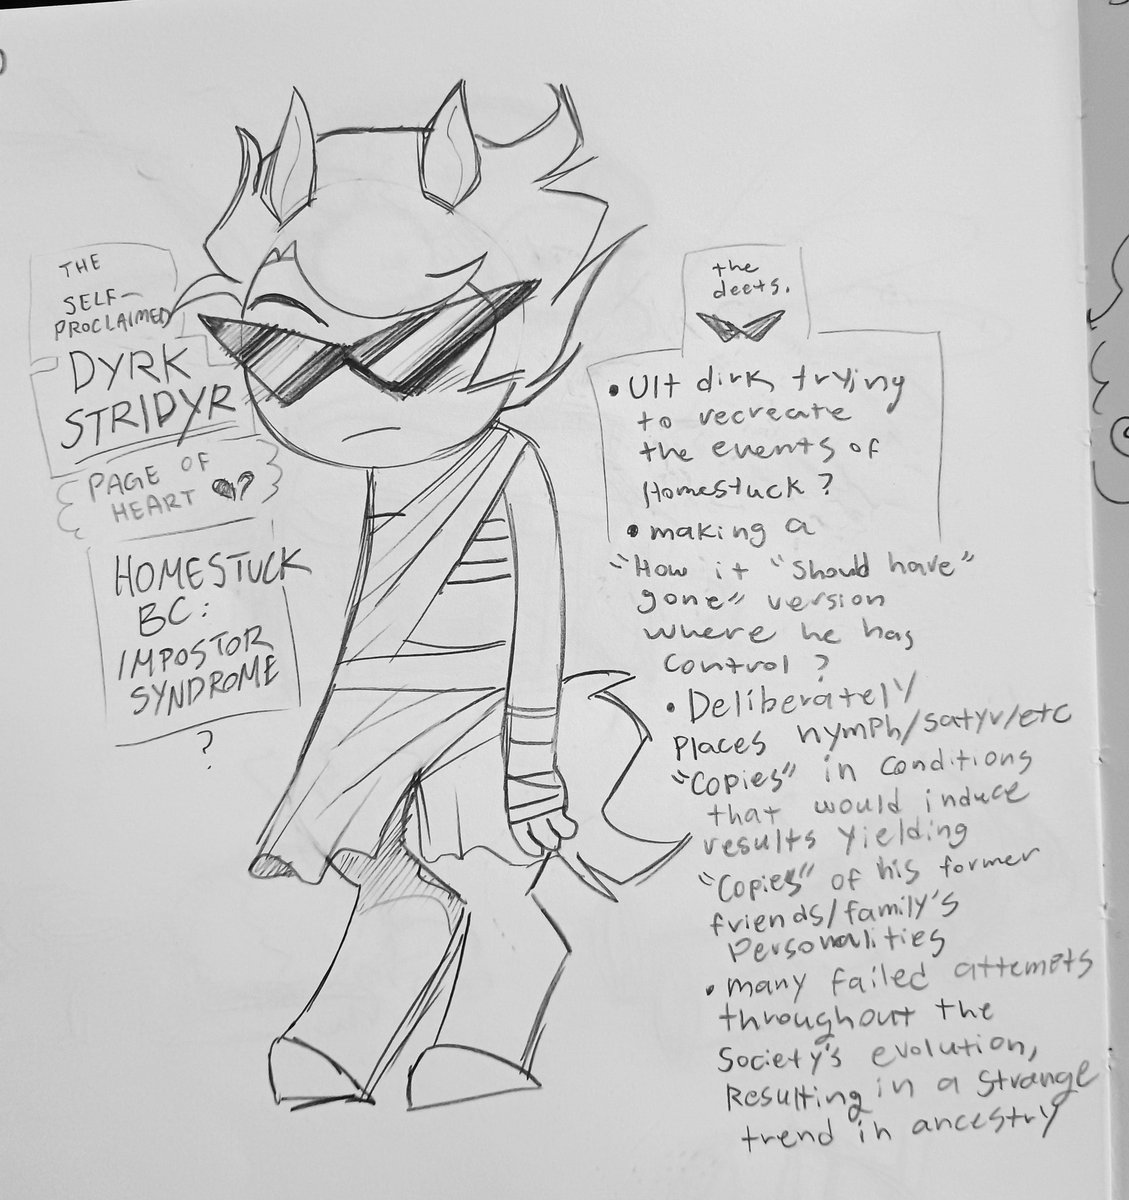 THE
SELF-
PROCLAIMED
DYRK
STRIDYR
PAGE OF
HEART ?
HOMESTUCK
BC:
IMPOSTOR
SYNDROME
?
the
deets.
• Ult dirk trying
to recreate
the events of
Homestuck?
• making a
"How it "should have"
gone" version
where he has
control?
• Deliberately
places nymph/satyr/etc
"copies" in conditions
that would induce
results yielding
"copies" of his former
friends/family's
personalities
• many failed attempts
throughout the
society's evolution,
Resulting in a strange
trend in ancestry